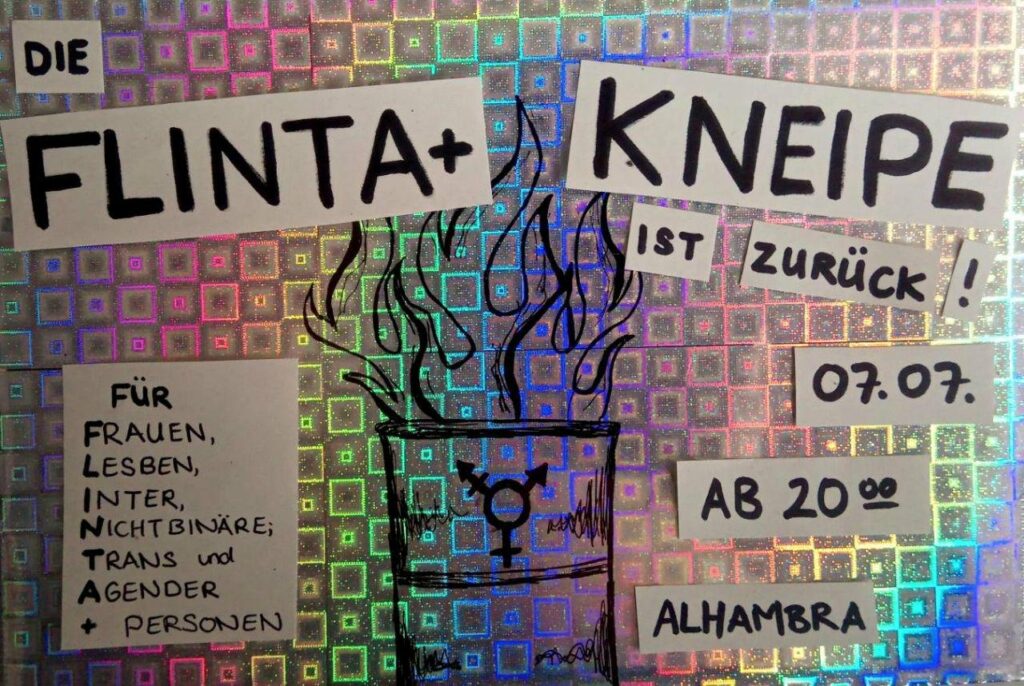 DIE
FLINTA+ KNEIPE
IST ZURÜCK!
07.07.
AB 20 00
ALHAMBRA
FÜR
FRAUEN,
LESBEN,
INTER,
NICHTBINÄRE;
TRANS und
AGENDER
+ PERSONEN